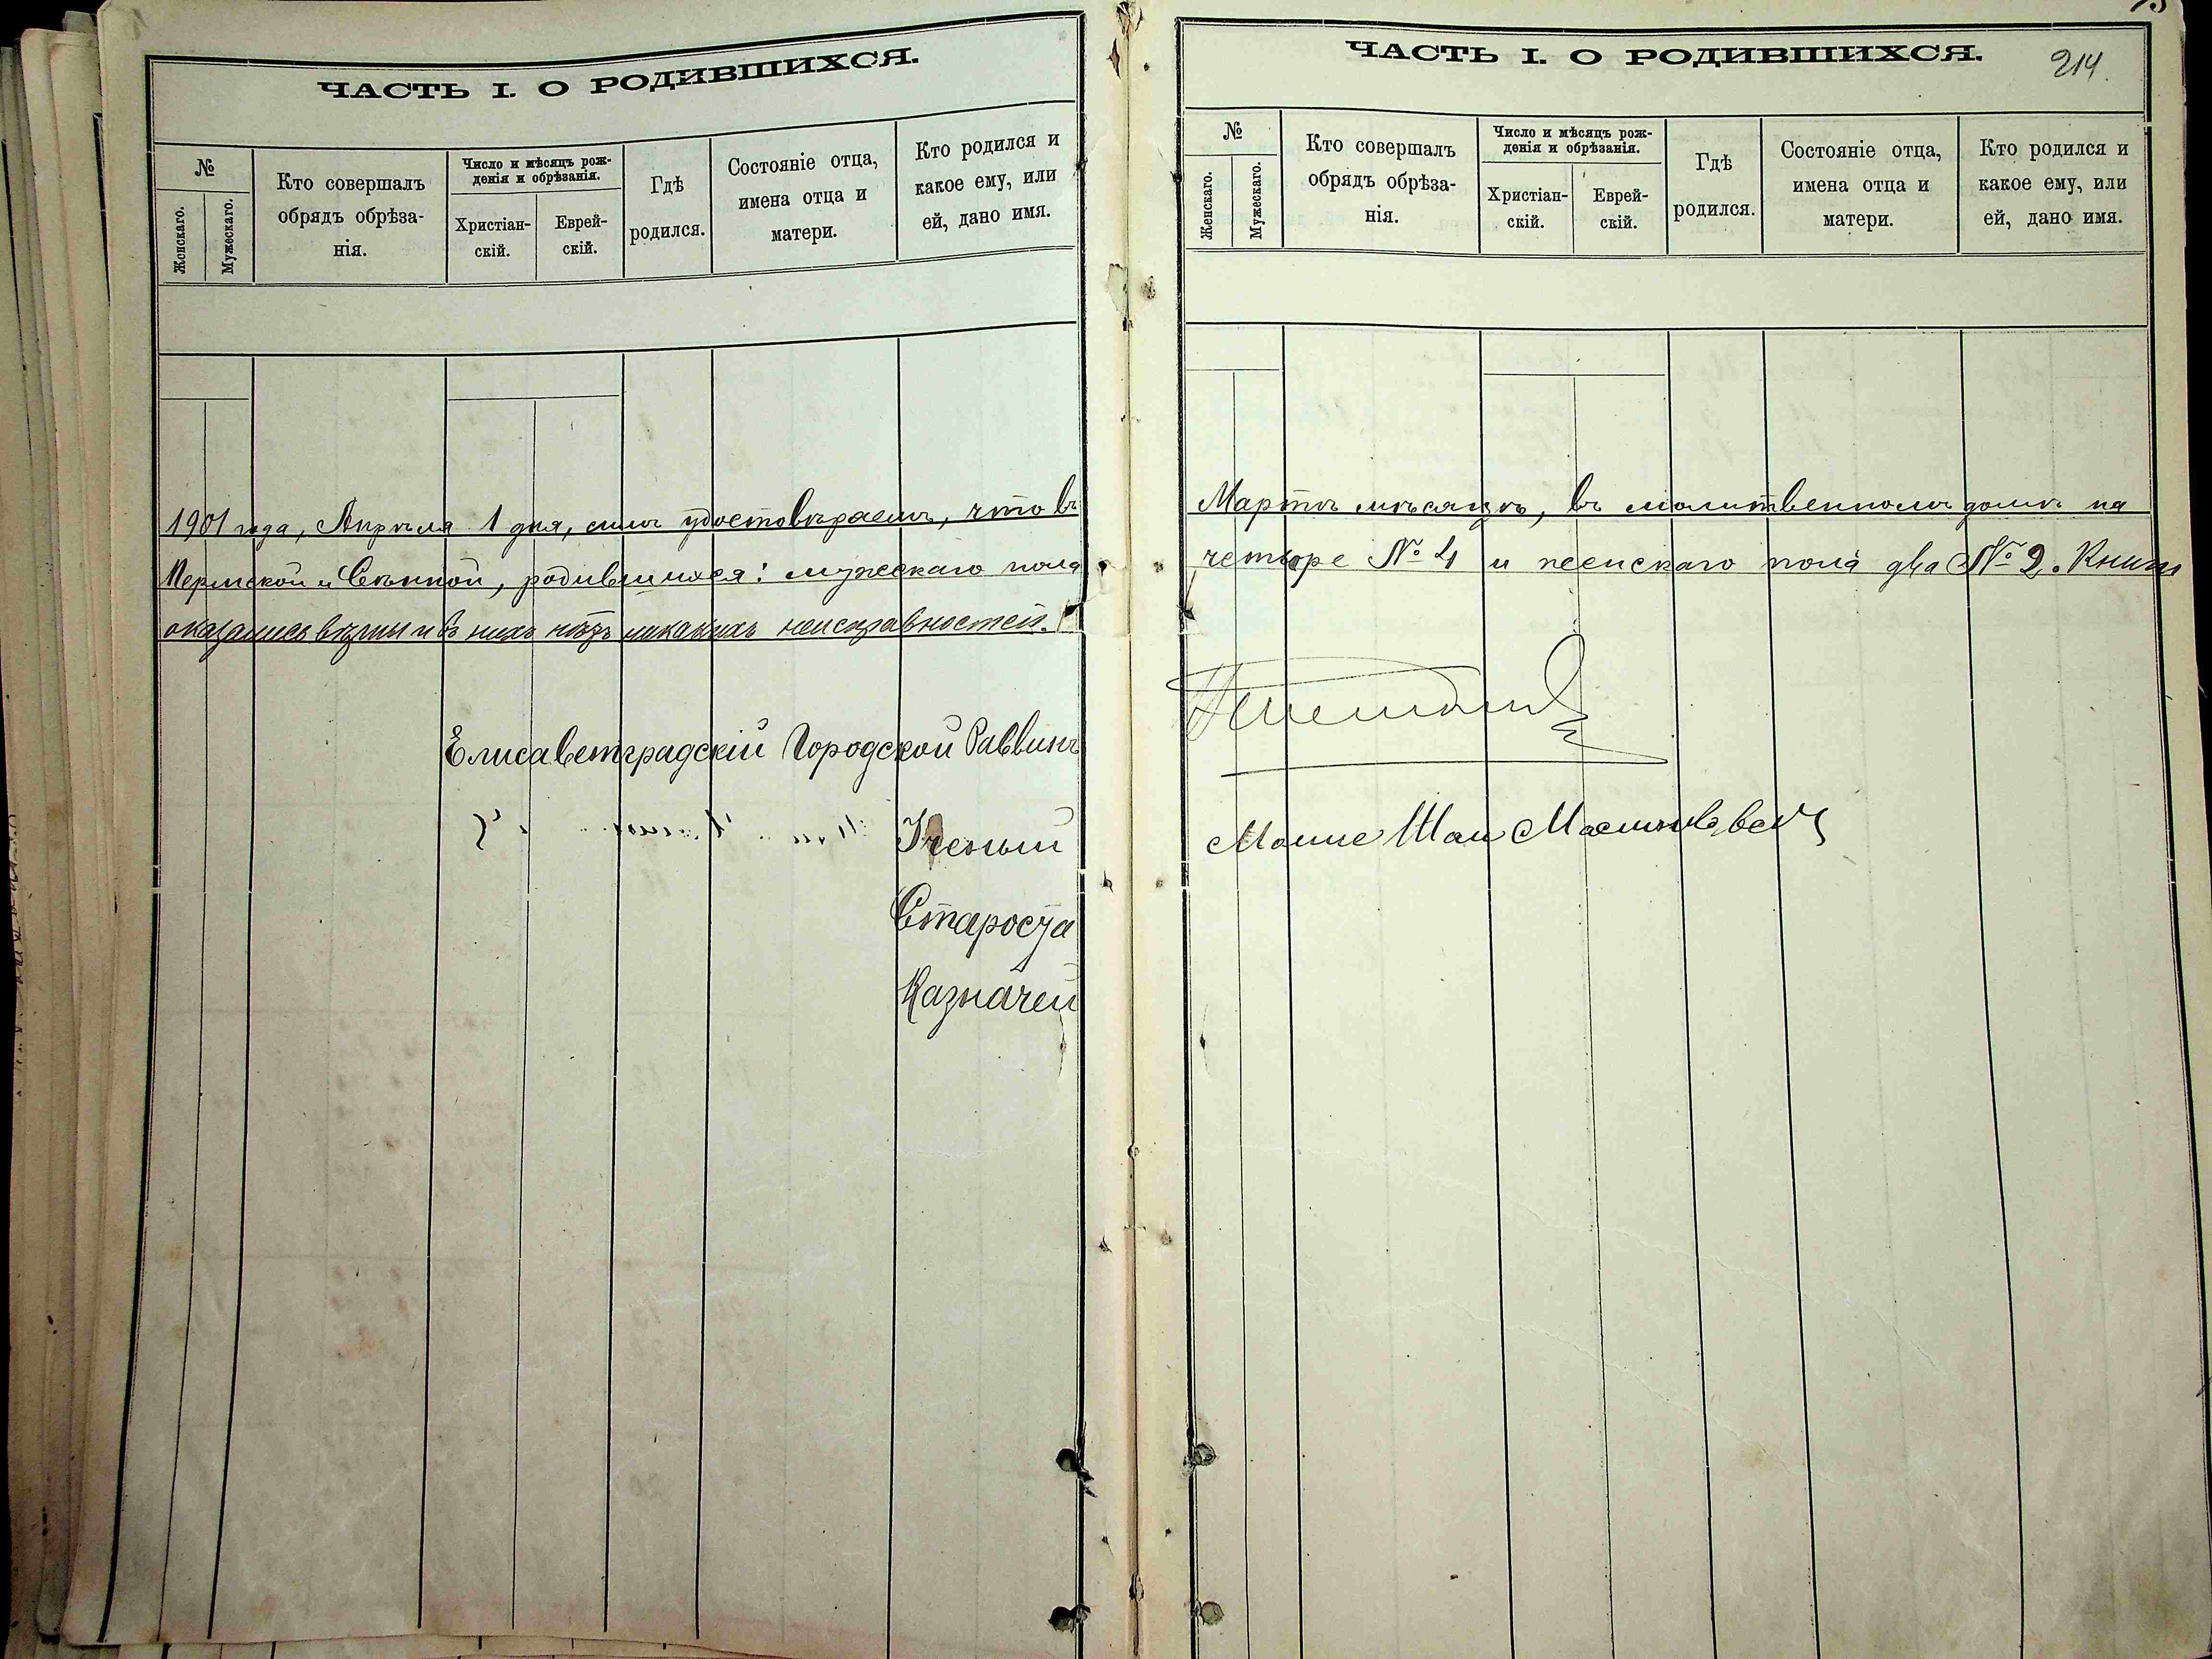 ЧАСТЬ I. О РОДИВШИХСЯ.
№
Женскаго.
Мужескаго.
Кто совершалъ
обрядъ обрѣза-
нія.
Число и мѣсяцъ рож-
денія и обрѣзанія.
Христіан-
скій.
Еврей-
скій.
Гдѣ
родился.
Состояніе отца,
имена отца и
матери.
Кто родился и
какое ему, или
ей, дано имя.
1901 года, Апрѣля 1 дня, симъ удостовѣряемъ, что въ
Пермской и Сѣнной, родившихся: мужескаго пола
оказались вѣрны и въ нихъ нѣтъ никакихъ неисправностей.
Елисаветградскій Городской Раввинъ
Ученый
Староста
Казначей
ЧАСТЬ I. О РОДИВШИХСЯ.
214.
№
Женскаго.
Мужескаго.
Кто совершалъ
обрядъ обрѣза-
нія.
Число и мѣсяцъ рож-
денія и обрѣзанія.
Христіан-
скій.
Еврей-
скій.
Гдѣ
родился.
Состояніе отца,
имена отца и
матери.
Кто родился и
какое ему, или
ей, дано имя.
Мартѣ мѣсяцѣ, въ молитвенномъ домѣ на
четыре № 4 и женскаго пола два № 2. Книги